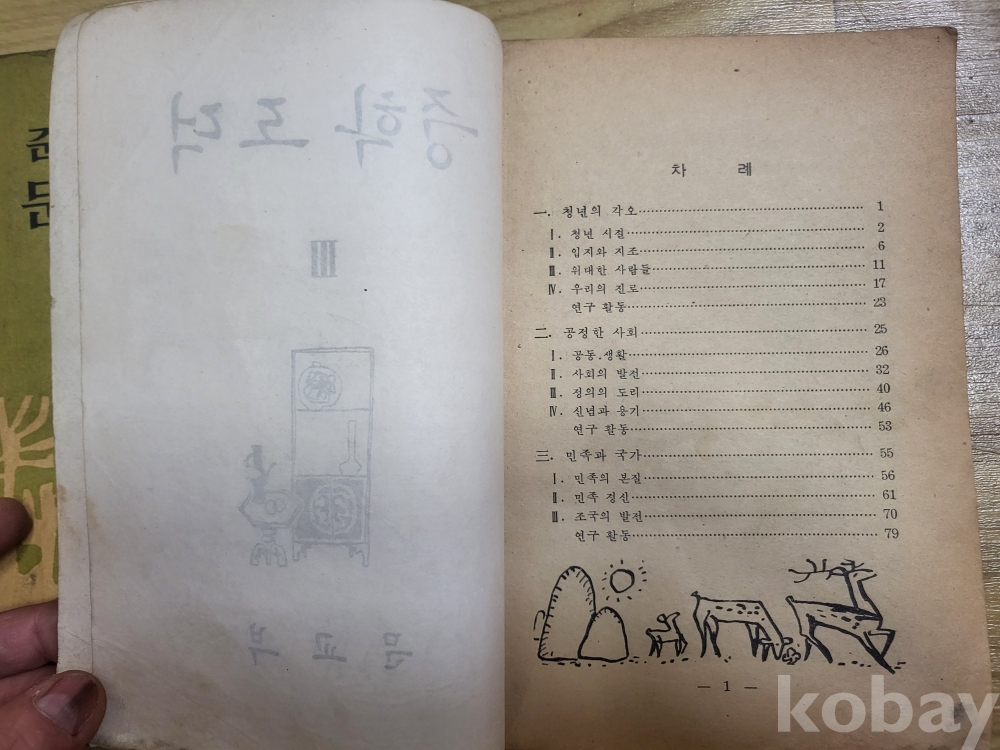 Ⅲ
차 례
一. 청년의 각오 1
Ⅰ. 청년 시절 2
Ⅱ. 입지와 지조 6
Ⅲ. 위대한 사람들 11
Ⅳ. 우리의 진로 17
연구 활동 23
二. 공정한 사회 25
Ⅰ. 공동 생활 26
Ⅱ. 사회의 발전 32
Ⅲ. 정의의 도리 40
Ⅳ. 신념과 용기 46
연구 활동 53
三. 민족과 국가 55
Ⅰ. 민족의 본질 56
Ⅱ. 민족 정신 61
Ⅲ. 조국의 발전 70
연구 활동 79
— 1 —
kobay